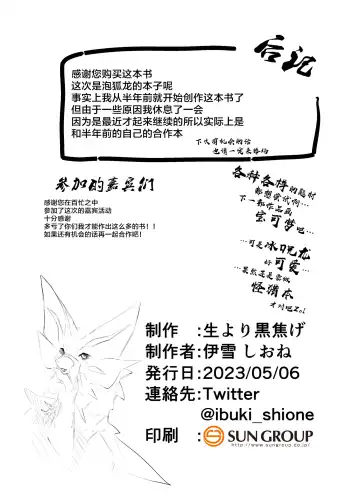 后记
感谢您购买这本书
这次是泡狐龙的本子呢
事实上我从半年前就开始创作这本书了
但由于一些原因我休息了一会
因为是最近才起来继续的所以实际上是
和半年前的自己的合作本
下次有机会的话
也请一定来捧场
参加的嘉宾们
感谢您在百忙之中
参加了这次的嘉宾活动
十分感谢
多亏了你们我才能作出这么多的书！！
如果还有机会的话再一起合作吧！
各种各样的题材
都想尝试啊…
下一部作品画
宝可梦吧…
…可是冰咒龙
好可爱…
…果然还是尝试
怪猎本
才对吧Zol
制作　:生より黒焦げ
制作者:伊雪 しおね
発行日:2023/05/06
連絡先:Twitter
@ibuki_shione
印刷　: SUN GROUP
http://www.sungroup.co.jp/